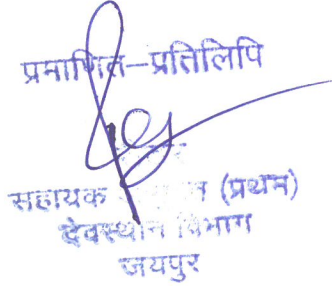 प्रमाणित–प्रतिलिपि
सहायक (प्रथम)
देवस्थान विभाग
जयपुर